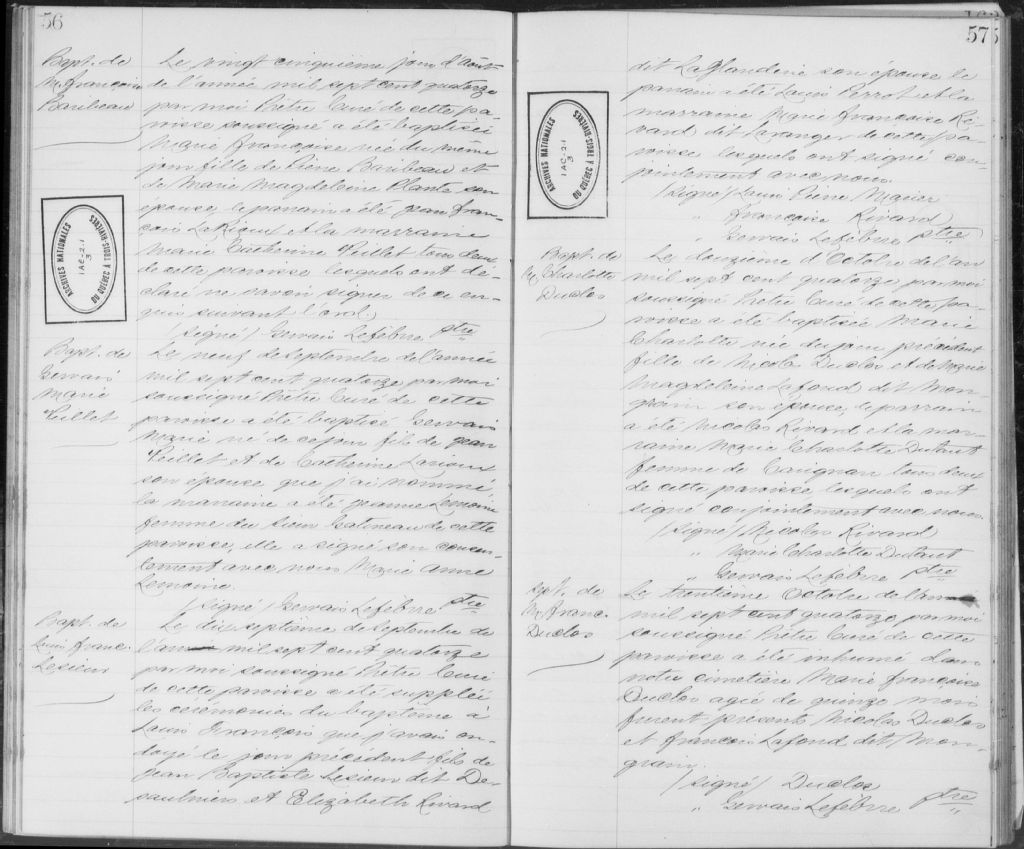 56
Bapt. de
M. françoise
Baribeau
Le vingt cinquième jour d'août
de l'année mil sept cent quatorze
par moi Prêtre Curé de cette pa-
roisse soussigné a été baptisée
Marie françoise née du même
jour fille de Pierre Baribeau et
de Marie Magdeleine Plante son
épouse, le parrain a été jean fran-
çois LeRigeur et la marraine
Marie Catherine Veillet tous deux
de cette paroisse lesquels ont dé-
claré ne savoir signer de ce en-
quis suivant l'ord.
/signé/ Gervais Lefebvre ptre
ARCHIVES NATIONALES
1AC-2.1
3
DU QUÉBEC À TROIS-RIVIÈRES
Bapt. de
Gervais
Marie
Veillet
Le neuf de Septembre de l'année
mil sept cent quatorze par moi
soussigné Prêtre Curé de cette
paroisse a été baptisé Gervais
Marie né de ce jour fils de jean
Veillet et de Catherine Lariou
son épouse que j'ai nommé
la marraine a été jeanne Lemoine
femme du Sieur Gatineau de cette
paroisse, elle a signé son consen-
tement avec nous Marie Anne
Lemoine.
/signé/ Gervais Lefebvre ptre
Bapt. de
Louis franc.
Lesieur
Le dix septième de Septembre de
l'an mil sept cent quatorze
par moi soussigné Prêtre Curé
de cette paroisse a été suppléé
les cérémonies du baptême à
Louis François que j'avais on-
doyé le jour précédent fils de
jean Baptiste Lesieur dit De-
saulniers et Elizabeth Rivard
57
dit LaGlanderie son épouse le
parrain a été Louis Perrot et la
marraine Marie françoise Ri-
vard dit Loranger de cette pa-
roisse lesquels ont signé con-
jointement avec nous.
/signé/ Louis Pierre
" françoise Rivard
" Gervais Lefebvre ptre
ARCHIVES NATIONALES
1AC-2.1
3
DU QUÉBEC À TROIS-RIVIÈRES
Bapt. de
M. Charlotte
Duclos
Le douzième d'Octobre de l'an
mil sept cent quatorze par moi
soussigné Prêtre Curé de cette pa-
roisse a été baptisée Marie
Charlotte née du jour précédent
fille de Nicolas Duclos et de Marie
Magdeleine Lafond dit Mon-
grain son épouse, le parrain
a été Nicolas Rivard et la mar-
raine Marie Charlotte Dutaut
femme de Carignan tous deux
de cette paroisse lesquels ont
signé conjointement avec nous.
/signé/ Nicolas Rivard
" Marie Charlotte Dutaut
" Gervais Lefebvre ptre
Sépt. de
M. franc.
Duclos
Le trentième Octobre de l'an
mil sept cent quatorze par moi
soussigné Prêtre Curé de cette
paroisse a été inhumé dans
notre cimetière Marie françoise
Duclos agée de quinze mois
furent présents Nicolas Duclos
et françois Lafond dit Mon-
grain.
/signé/ Duclos
" Gervais Lefebvre ptre
"